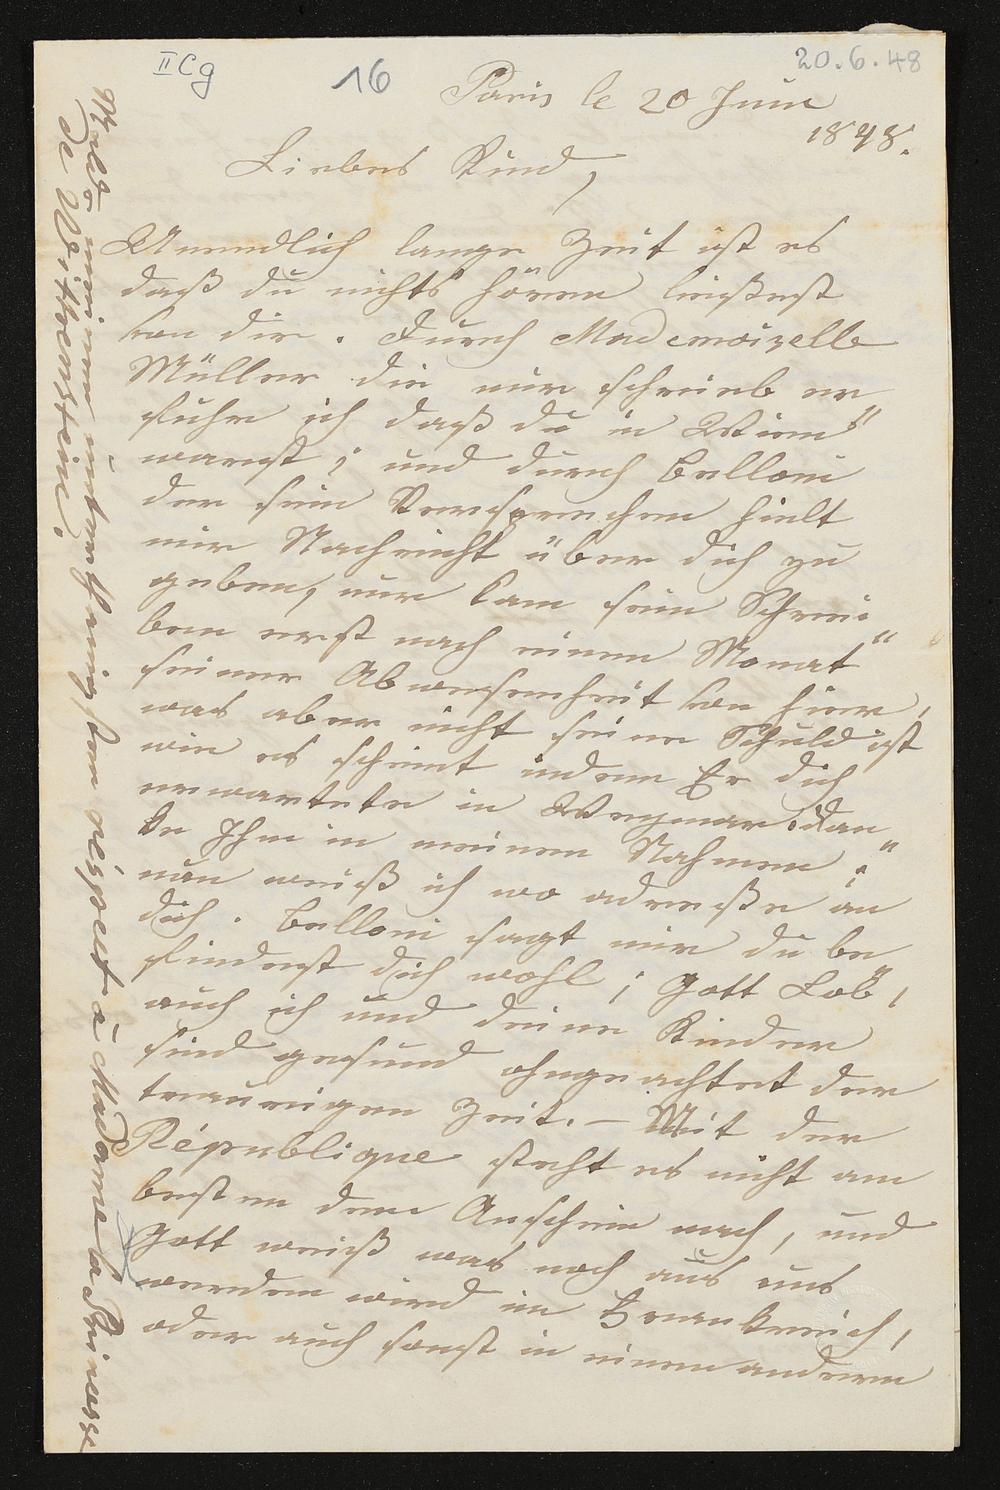 II Cg 16 20.6.48
Paris le 20 Juin
1848.
Liebes Kind,
Unendlich lange Zeit ist es
daß du nichts hören liessest
von dir. Durch Mademoizelle
Müller die mir schrieb er„
fuhr ich daß du in Wien
warest; und durch Belloni
der sein Versprechen hielt
mir Nachricht über dich zu
geben, nur kam sein Schrei„
ben erst nach einen Monat
seiner Abwesenheit von hier,
was aber nicht seine Schuld ist
wie es scheint indem Er dich
erwartete in Weymar. Dan„
ke Ihm in meinem Nahmen;
nun weiß ich wo adreße an
dich. Belloni sagt mir du be„
findest dich wohl; Gott Lob,
auch ich und deine Kinder
sind gesund ohngeachtet der
traurigen Zeit. – Mit der
République steht es nicht am
besten dem Anschein nach, und
Gott weiß was noch aus uns
werden wird in Frankreich,
oder auch sonst in einem andern
Melde meinen unterthänigsten réspect à Madame la Princesse
de Wittgenstein.